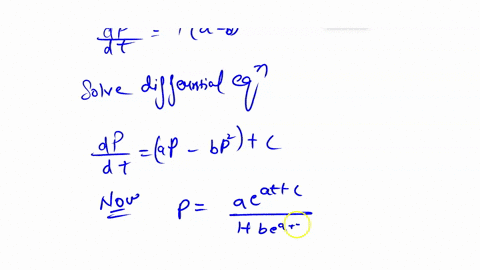 dP/dt = P(a-b
Solve differential eqⁿ
dP/dt = (aP - bP²) + C
Now P = ae^(at+c) / 1+ be^(a